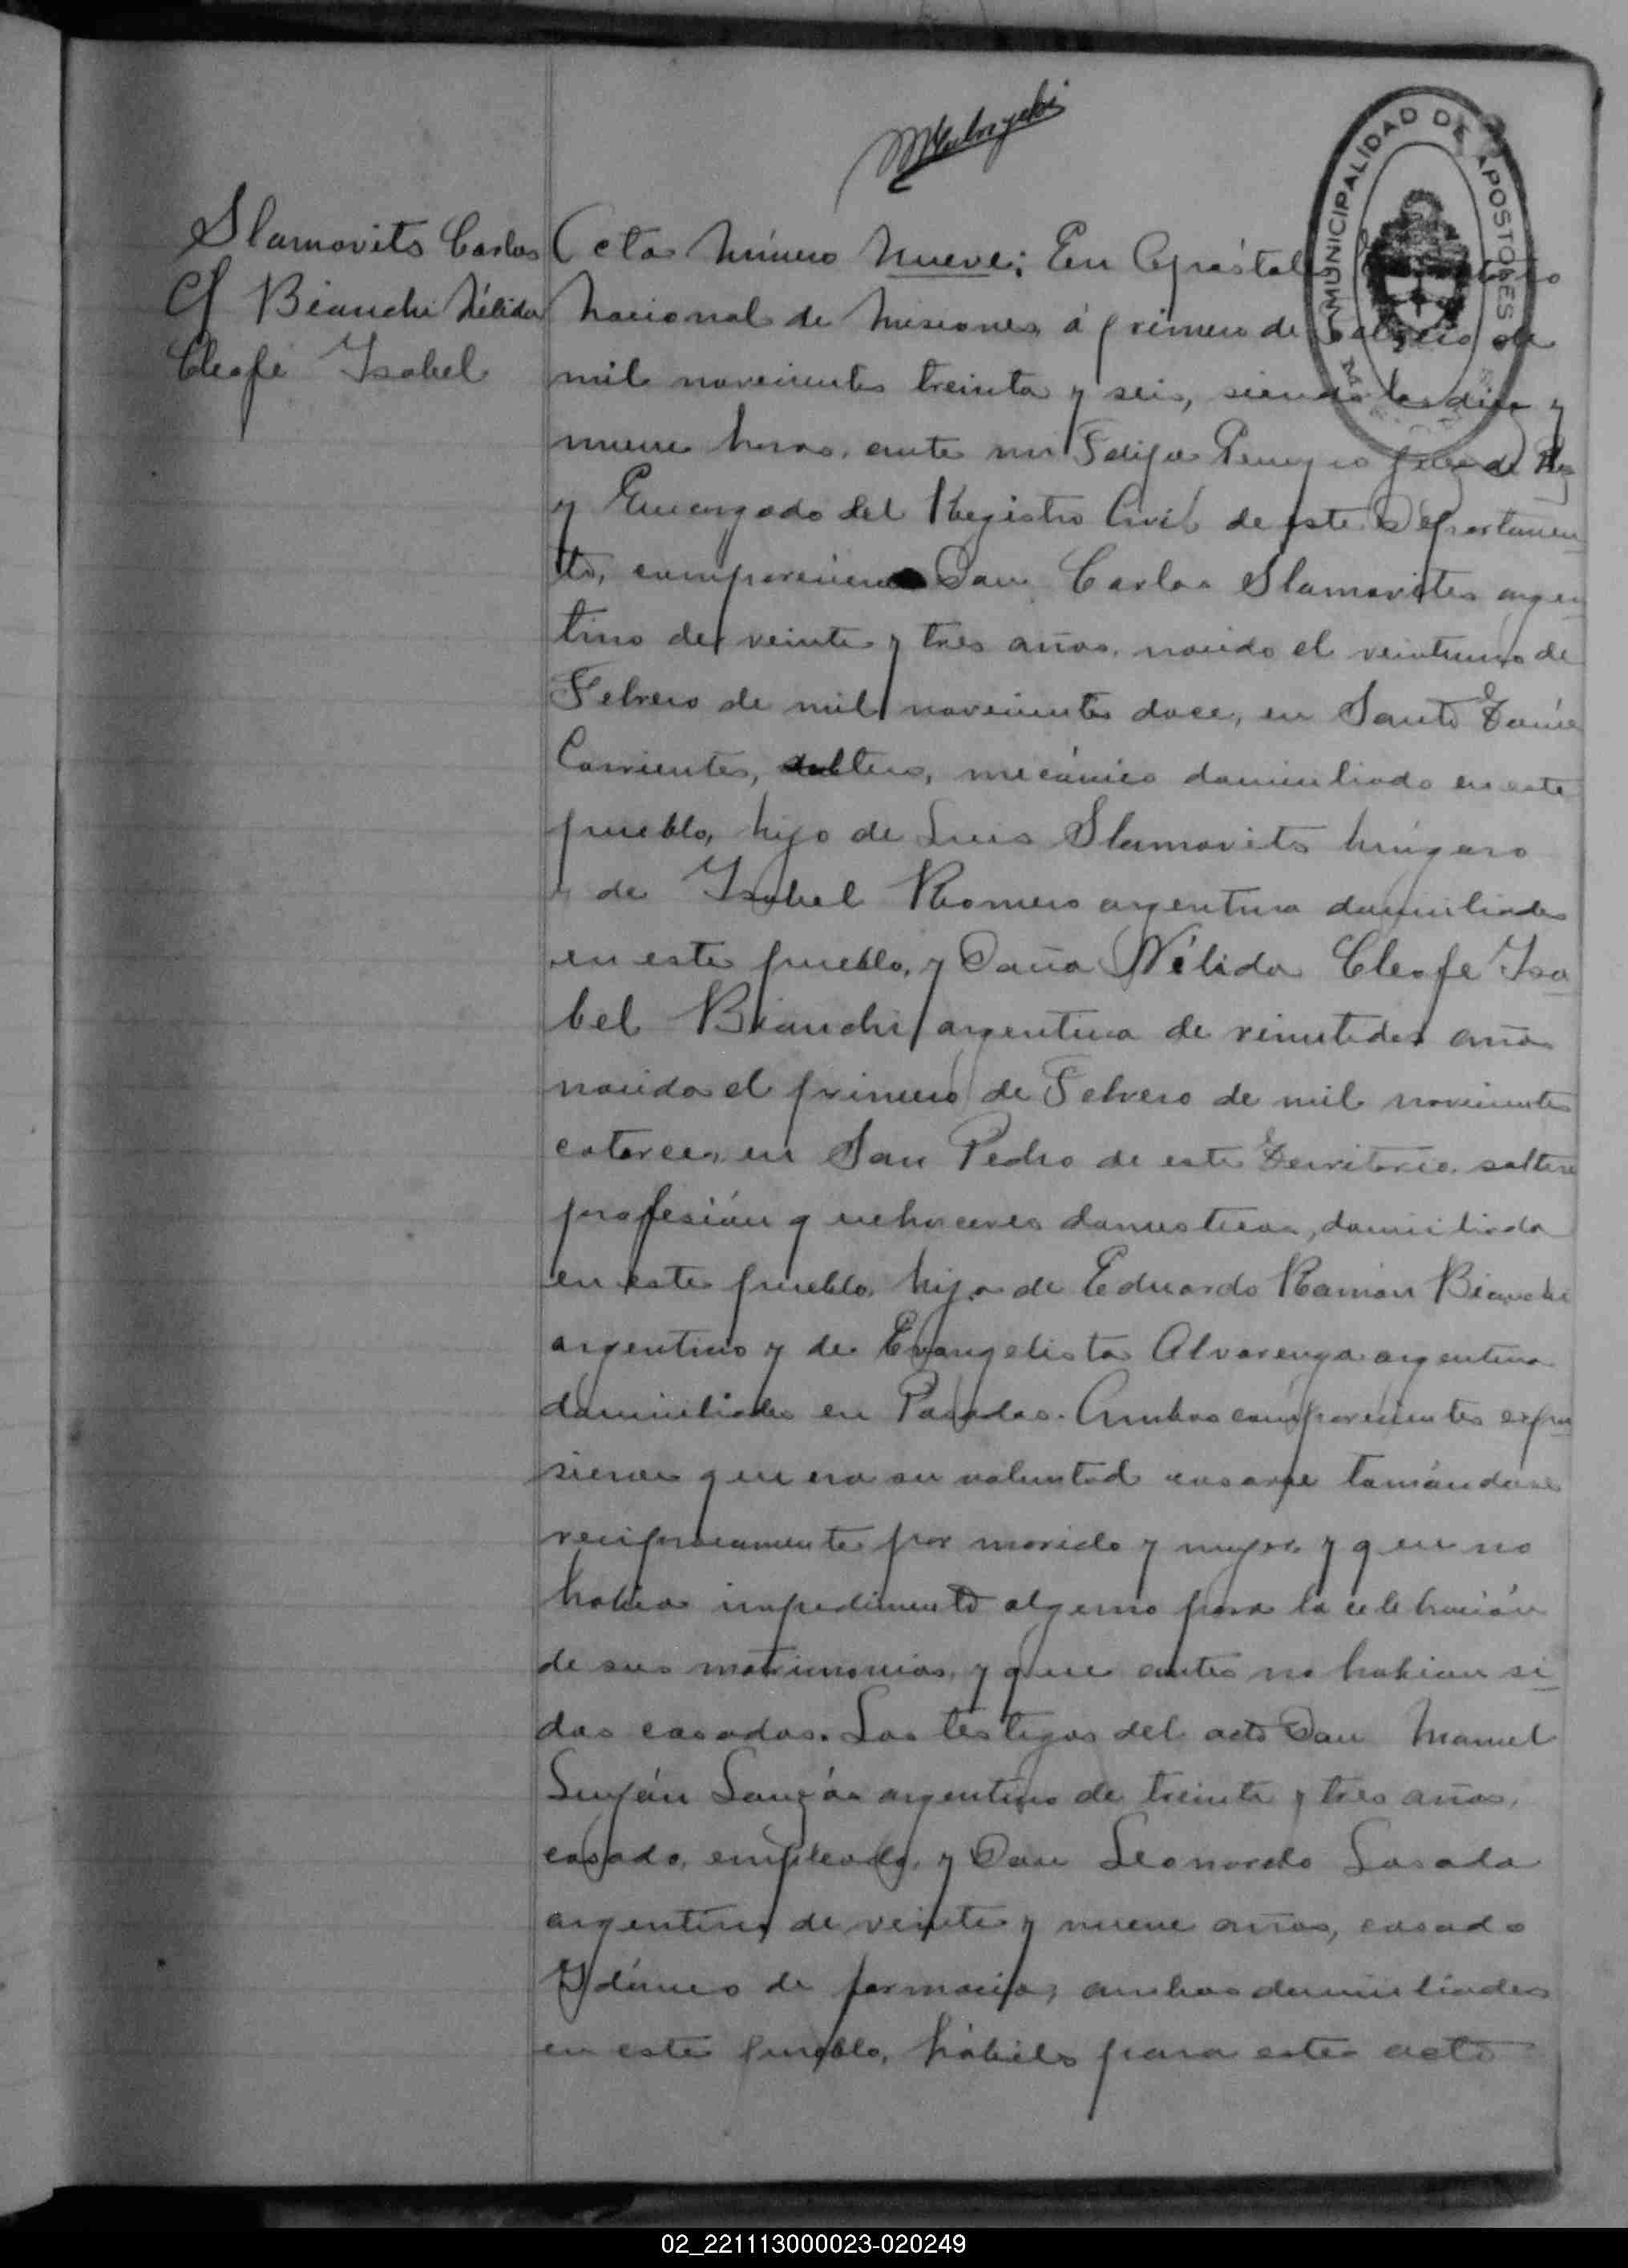 MUNICIPALIDAD DE APOSTOLES
Slamovits Carlos
C/ Bianchi Nélida
Cleofe Isabel
Acta Número Nueve; En Apóstoles
Nacional de Misiones á primero de Febrero de
mil novecientos treinta y seis, siendo las diez y
nueve horas, ante mi Felipe Juez de Paz
y Encargado del Registro Civil de este Departamen
to, comparecieron Don Carlos Slamovits argen
tino de veinte y tres años, nacido el veintiuno de
Febrero de mil novecientos doce, en Santo Tomé
Corrientes, soltero, mecánico domiciliado en este
pueblo, hijo de Luis Slamovits húngaro
y de Isabel Romero argentina domiciliados
en este pueblo, y Doña Nélida Cleofe Isa
bel Bianchi argentina de veintidos años
nacida el primero de Febrero de mil novecientos
catorce, en San Pedro de este Territorio, soltera
profesión quehaceres domesticos, domiciliada
en este pueblo, hija de Eduardo Ramón Bianchi
argentino y de Evangelista Alvarenga argentina
domiciliados en Posadas. Ambos comparecientes expu
sieron que era su voluntad casarse tomándose
reciprocamente por marido y mujer y que no
había impedimento alguno para la celebración
de sus matrimonios, y que antes no habian si
dos casados. Los testigos del acto Don Manuel
Luján argentino de treinta y tres años,
casado, empleado, y Don Leonardo Losada
argentino de veinte y nueve años, casado
Idóneo de farmacia, ambos domiciliados
en este pueblo, hábiles para este acto
02_221113000023-020249